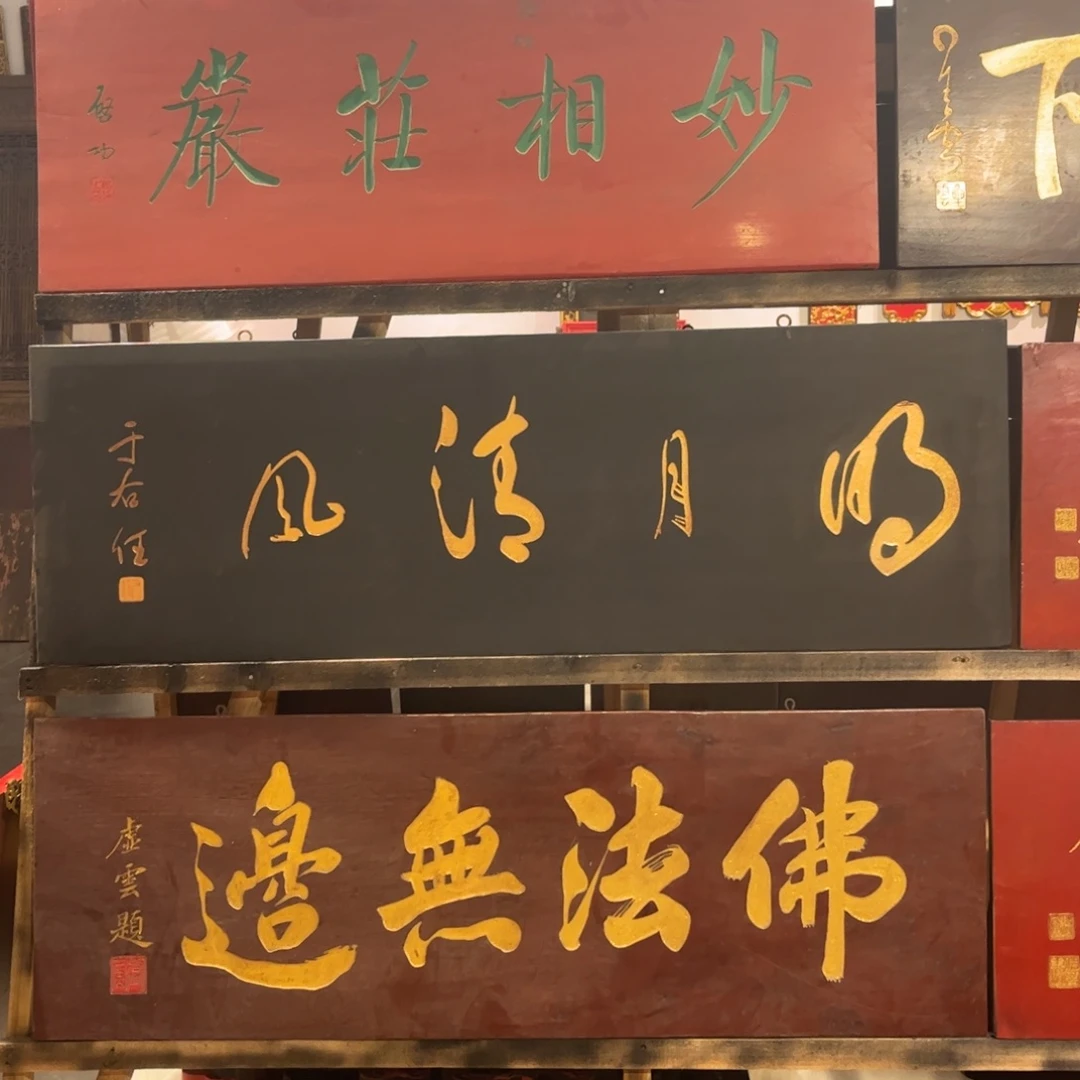 妙相莊嚴
啟功
下
明月清風
于右任
佛法無邊
虛雲題